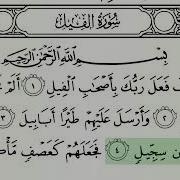 سُورَةُ الْفِيلِ
بِسْمِ اللَّهِ الرَّحْمَٰنِ الرَّحِيمِ
فَعَلَ رَبُّكَ بِأَصْحَابِ الْفِيلِ ١ أَلَمْ
٢ وَأَرْسَلَ عَلَيْهِمْ طَيْرًا أَبَابِيلَ ٣
مِّن سِجِّيلٍ ٤ فَجَعَلَهُمْ كَعَصْفٍ